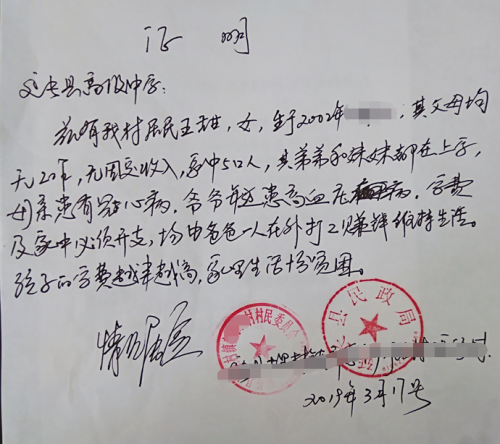 证明
延长县高级中学：
兹有我村居民王甜，女，生于2002年，其父母均
无工作，无固定收入，家中5口人，其弟弟和妹妹都在上学，
母亲患有冠心病，爷爷年迈患高血压病，学费
及家中必须开支，均由爸爸一人在外打工赚钱维持生活。
孩子的学费越来越高，家里生活十分贫困。
情况属实
村民委员会
县民政局
2019年3月17号